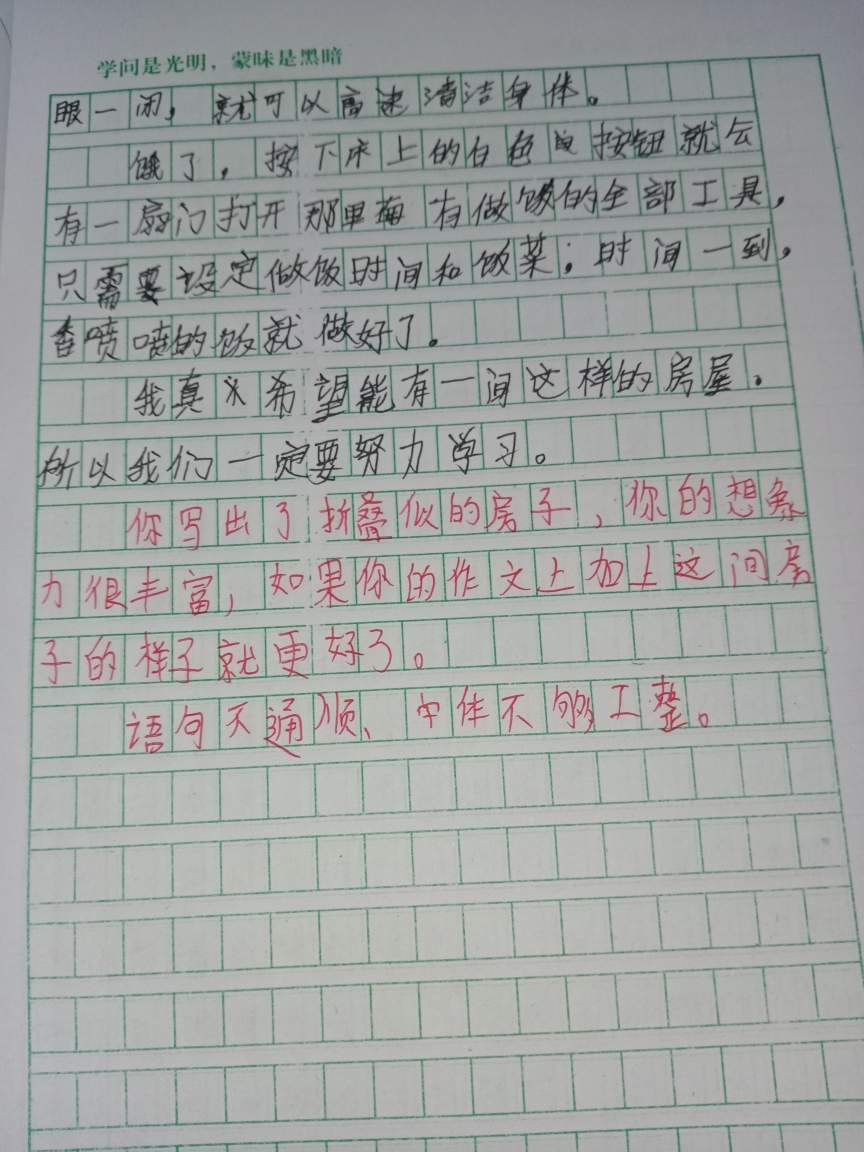 学问是光明，蒙昧是黑暗
眼一闭，就可以高速清洁身体。
饿了，按下床上的白色的按钮就会
有一扇门打开那里每有做饭的全部工具，
只需要设定做饭时间和饭菜；时间一到，
香喷喷的饭就做好了。
我真希望能有一间这样的房屋。
所以我们一定要努力学习。
你写出了折叠似的房子，你的想象
力很丰富，如果你的作文上加上这间房
子的样子就更好了。
语句不通顺、字体不够工整。